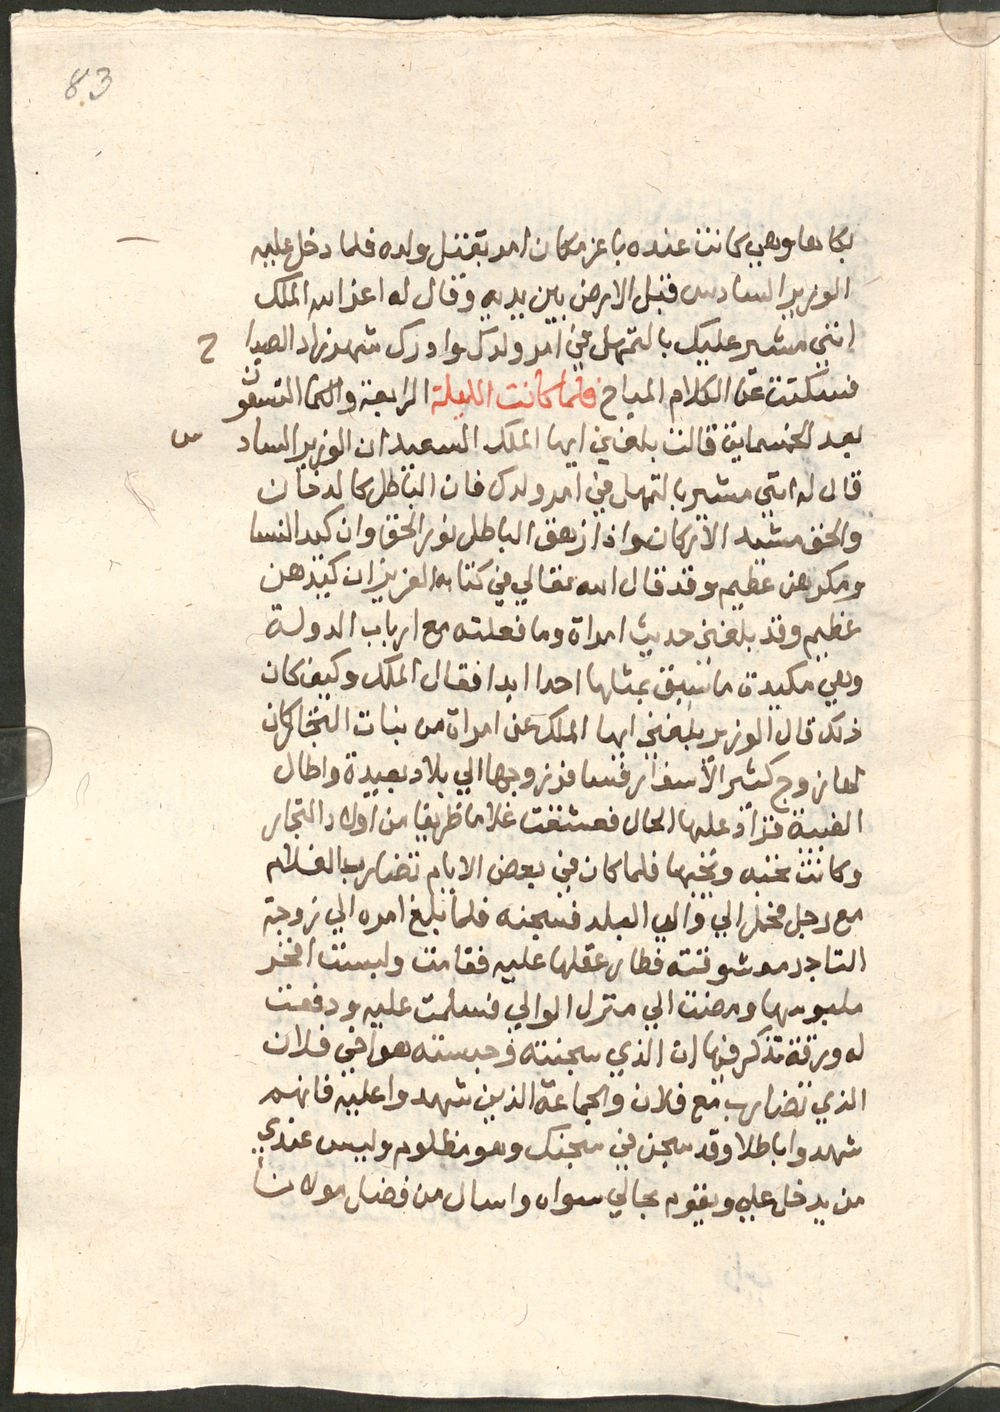 83
بكاها وهي كانت عنده باعز مكان امر بقتل ولده فلما دخل عليه
الوزير السادس فقبل الارض بين يديه وقال له اعز الله الملك
انني مشير عليك بالتمهل في امر ولدك وادرك شهرزاد الصبا ح
فسكتت عن الكلام المباح فلما كانت الليلة الرابعة والثما التسعون
بعد الخمسماية قالت بلغني ايها الملك السعيد ان الوزير الساد س
قال له انني مشير بالتمهل في امر ولدك فان الباطل كالدخان
والحق مشيد الاركان واذا زهق الباطل نور الحق وان كيد النسا
ومكرهن عظيم وقد قال الله تعالي في كتابه العزيز ان كيدهن
عظيم وقد بلغني حديث امراة وما فعلته مع ارباب الدولة
وهي مكيدة ما سبق بمثلها احدا ابدا فقال الملك وكيف كان
ذلك قال الوزير بلغني ايها الملك عن امراة من بنات التجار كان
لها زوج كثير الاسفار فسافر زوجها الي بلاد بعيدة واطال
الغيبة فزاد عليها الحال فعشقت غلاما ظريفا من اولاد التجار
وكانت تحبه ويحبها فلما كان في بعض الايام تضارب الغلام
مع رجل فحمل الي والي البلد فسجنه فلما بلغ امره الي زوجة
التاجر معشوقته فطار عقلها عليه فقامت ولبست افخر
ملبوسها ومضت الي منزل الوالي فسلمت عليه ودفعت
له ورقة تذكر فيها ان الذي سجنته وحبسته هو اخي فلان
الذي تضارب مع فلان والجماعة الذين شهدوا عليه فانهم
شهدوا باطلا وقد سجن في سجنك وهو مظلوم وليس عندي
من يدخل علي ويقوم بحالي سواه واسال من فضل مولانا